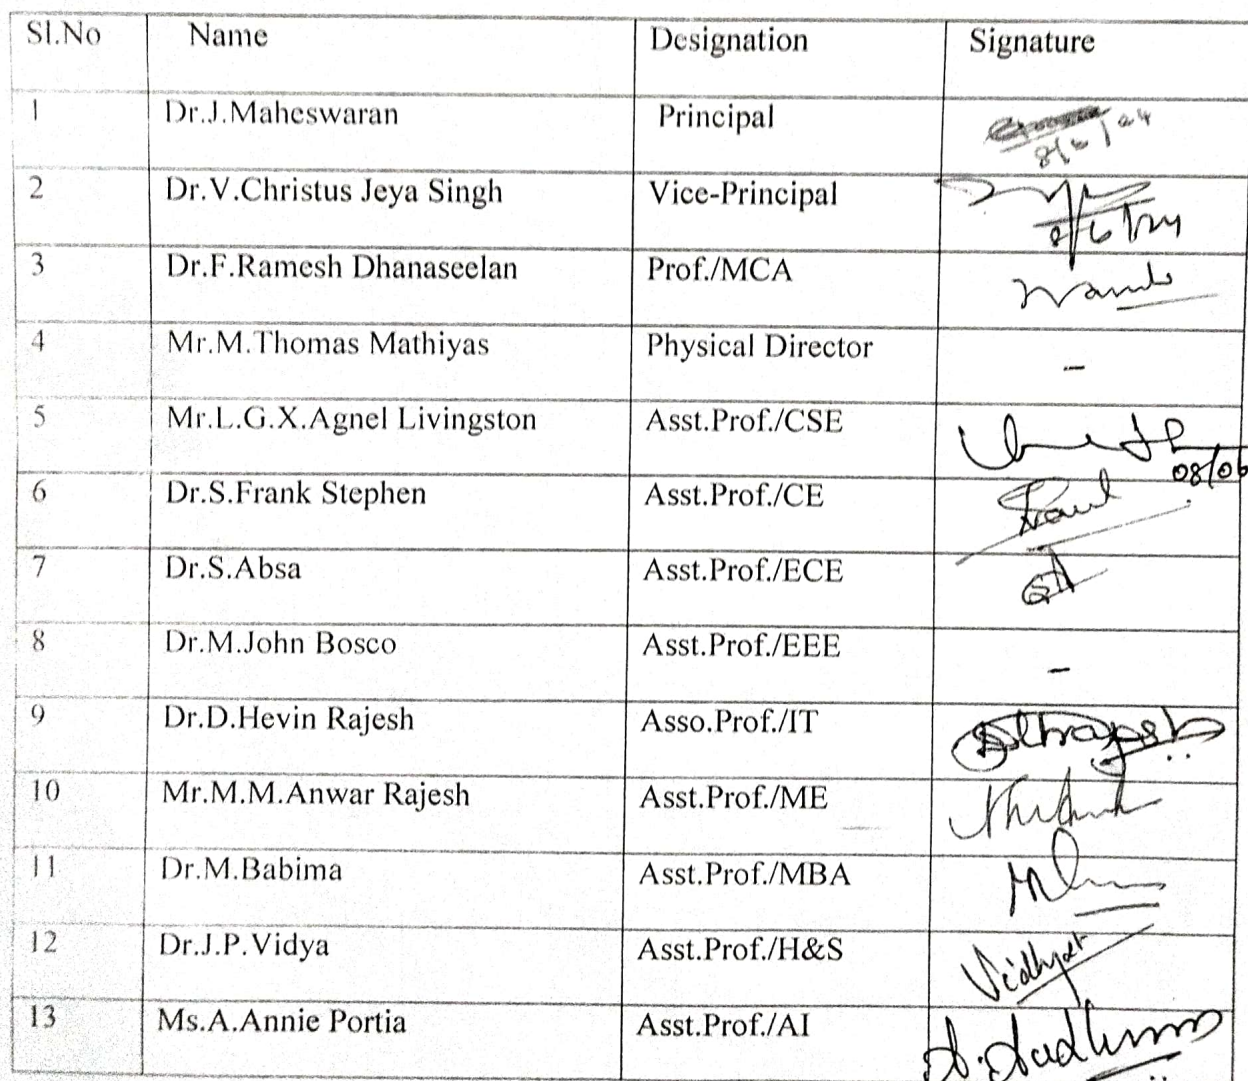 Sl.No Name Designation Signature
1 Dr.J.Maheswaran Principal
8/6/24
2 Dr.V.Christus Jeya Singh Vice-Principal
8/6/24
3 Dr.F.Ramesh Dhanaseelan Prof./MCA
4 Mr.M.Thomas Mathiyas Physical Director -
5 Mr.L.G.X.Agnel Livingston Asst.Prof./CSE
08/06
6 Dr.S.Frank Stephen Asst.Prof./CE
7 Dr.S.Absa Asst.Prof./ECE
8 Dr.M.John Bosco Asst.Prof./EEE -
9 Dr.D.Hevin Rajesh Asso.Prof./IT
10 Mr.M.M.Anwar Rajesh Asst.Prof./ME
11 Dr.M.Babima Asst.Prof./MBA
12 Dr.J.P.Vidya Asst.Prof./H&S
13 Ms.A.Annie Portia Asst.Prof./AI